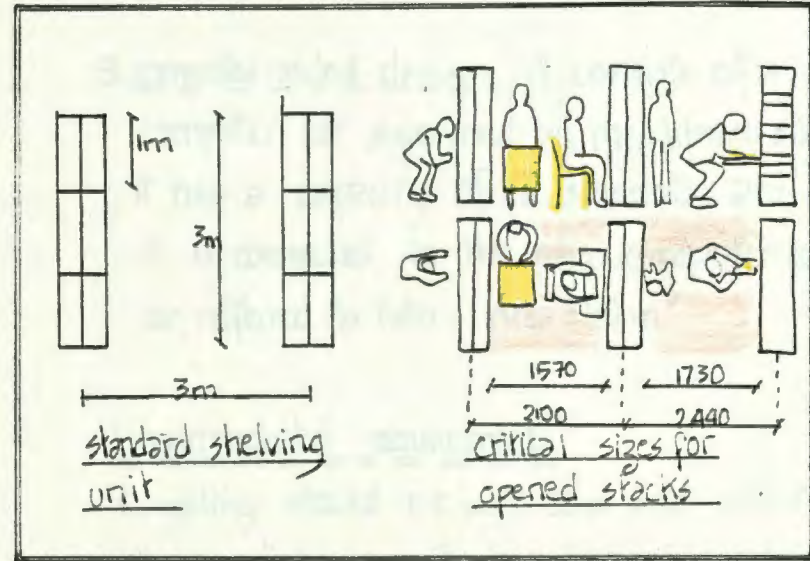 1m
3m
3m
standard shelving
unit
1570
1730
2100
2440
critical sizes for
opened stacks